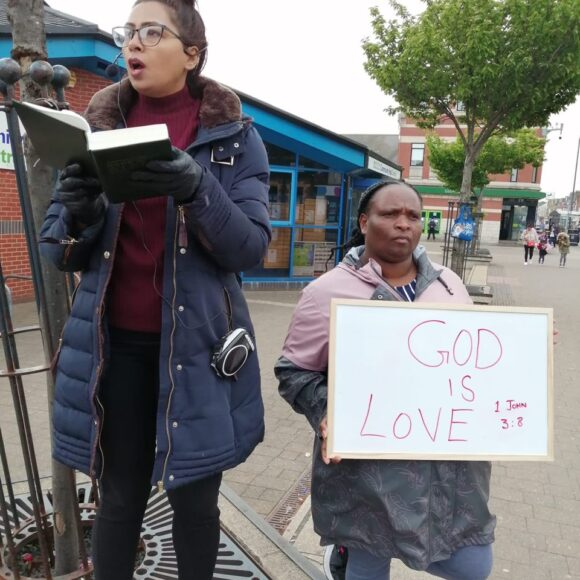 GOD
IS
LOVE
1 JOHN
3:8